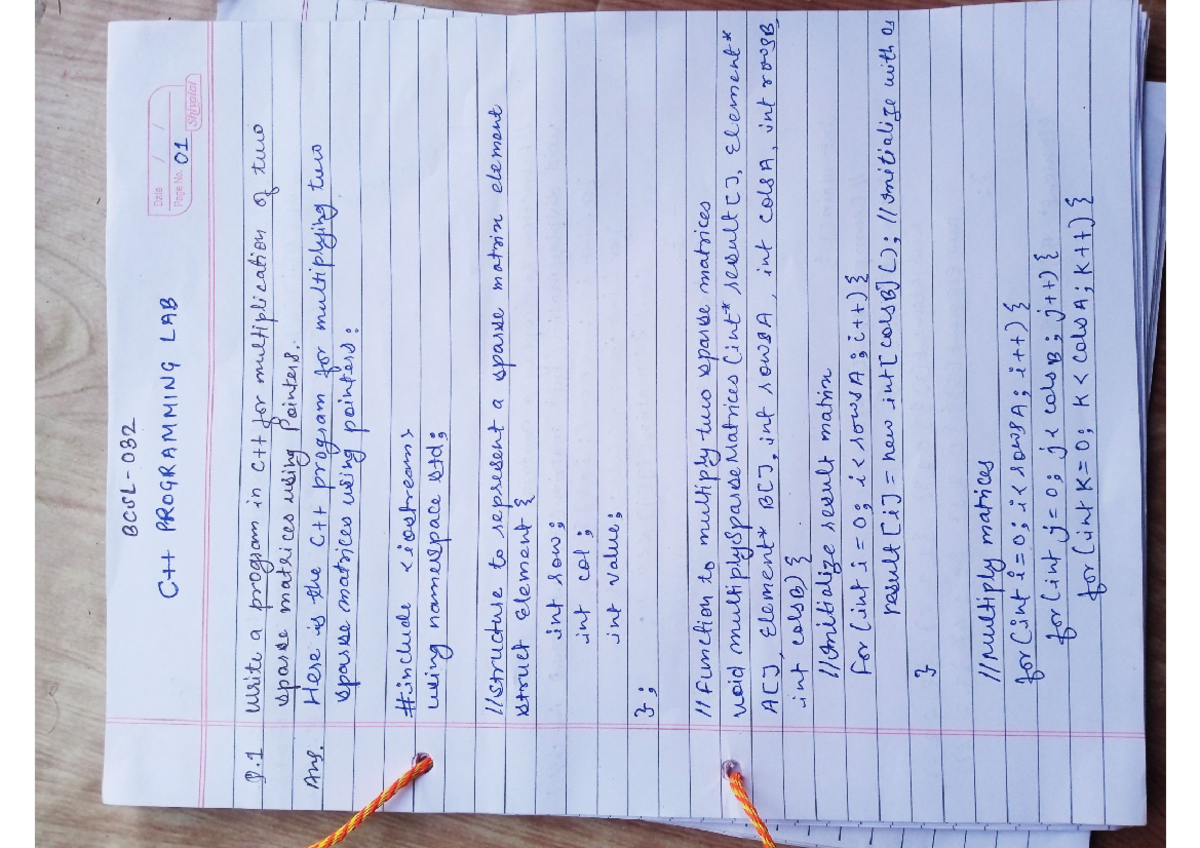 BCSL-032
C++ PROGRAMMING LAB
Date / /
Page No. 01
Shivalal
Q.1 Write a program in C++ for multiplication of two
sparse matrices using Pointers.
Ans. Here is the C++ program for multiplying two
sparse matrices using pointers:
#include <iostream>
using namespace std;
//Structure to represent a sparse matrix element
struct Element {
int row;
int col;
int value;
};
//Function to multiply two sparse matrices
void multiplySparseMatrices (int* result[], Element*
A[], Element* B[], int rowsA, int colsA, int rowsB,
int colsB) {
//Initialize result matrix
for (int i = 0; i < rowsA; i++) {
result[i] = new int[colsB](); //Initialize with 0s
}
//Multiply matrices
for(int i=0; i< rowsA; i++) {
for(int j=0; j< colsB; j++) {
for(int k=0; k< colsA; k++) {